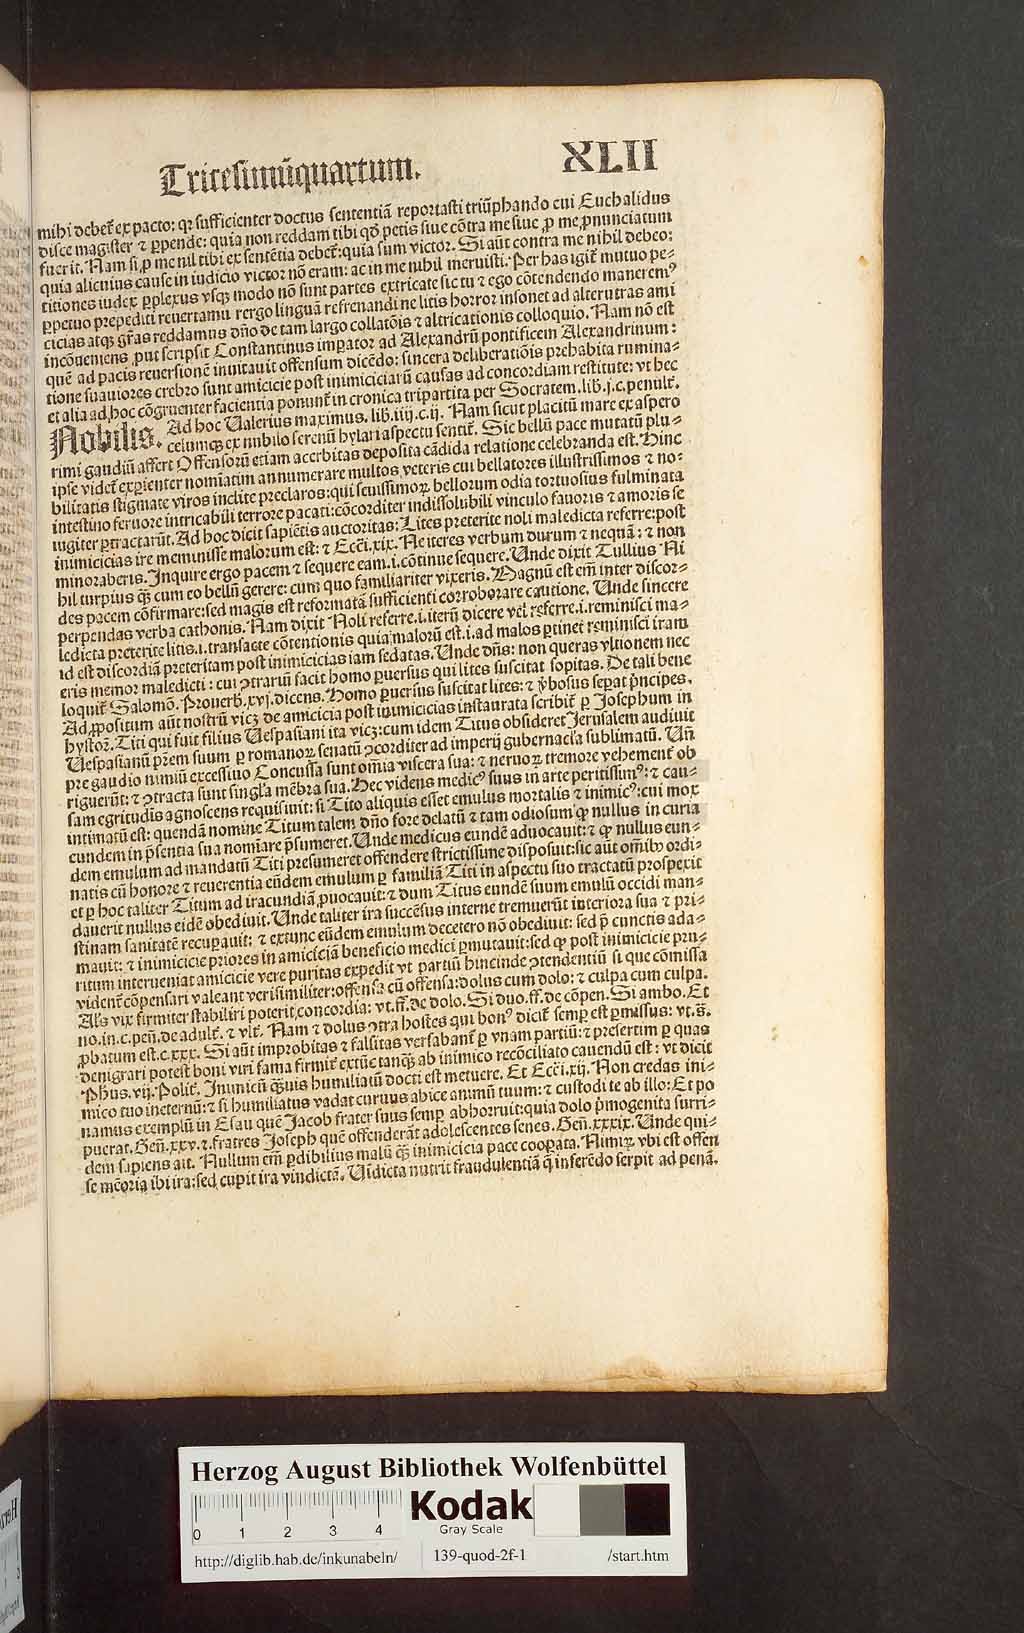 Tricesimūquartum. XLII
mihi debet̄ ex pacto: qꝛ sufficienter doctus sententiā reportasti triūphando cui Euchalidus
disce magister ⁊ ꝑpende: quia non reddam tibi qđ petis siue cōtra me siue ꝓ me ꝓnunciatum
fuerit. Nam si ꝓ me nil tibi ex sentētia debet̄: quia sum victor. Si aūt contra me nihil debeo:
quia alicuius cause in iudicio victor nō eram: ac in me nihil meruisti. Per has igit̄ mutuo pe-
titiones iudex ꝑplexus vsqꝫ modo nō sunt partes extricate sic tu ⁊ ego cōtendendo maneremꝰ
ꝑpetuo prepediti reuertamu rergo linguā refrenandi ne litis horror insonet ad alterutras ami
cicias atqꝫ gr̄as reddamus dn̄o de tam largo collatōis ⁊ altricationis colloquio. Nam nō est
incōueniens ꝓut scripsit Constantinus imꝑator ad Alexandrū pontificem Alexandrinum:
quē ad pacis reuersionē inuitauit offensum dicēdo: sincera deliberatiōis prehabita rumina-
tione suauiores crebro sunt amicicie post inimiciciarū causas ad concordiam restitute: vt hec
et alia ad hoc cōgruenter facientia ponunt̄ in cronica tripartita per Socratem. lib. j. c. penult̄.
Nobilis. Ad hoc Ualerius maximus. lib. iiij. c. ij. Nam sicut placitū mare ex aspero
celumqꝫ ex nubilo serenū hylari aspectu sentit̄. Sic bellū pace mutatū plu-
rimi gaudiū affert Offensorū etiam acerbitas deposita cādida relatione celebranda est. Hinc
ipse videt̄ exꝑienter nomiatim annumerare multos veteris cui bellatores illustrissimos ⁊ no-
bilitatis stigmate viros inclite preclaros: qui seuissimoꝝ bellorum odia tortuosius fulminata
intestino feruore intricabili terrore pacati: cōcorditer indissolubili vinculo fauoris ⁊ amoris se
iugiter ꝑtractarūt. Ad hoc dicit sapiētis auctoritas: Lites preterite noli maledicta referre: post
inimicicias ire meminisse malorum est: ⁊ Ecc̄i. xix. Ne iteres verbum durum ⁊ nequā: ⁊ non
minoraberis. Inquire ergo pacem ⁊ sequere eam. i. cōtinue sequere. Unde dixit Tullius Ni
hil turpius qꝫ cum eo bellū gerere: cum quo familiariter vixeris. Magnū est em̄ inter discor-
des pacem cōfirmare: sed magis est reformatā sufficienti corroborare cautione. Unde sincere
perpendas verba cathonis. Nam dixit Noli referre. i. iterū dicere vel referre. i. reminisci ma-
ledicta preterite litis. i. transacte cōtentionis quia malorū est. i. ad malos ꝑtinet reminisci iram
id est discordiā preteritam post inimicicias iam sedatas. Unde dn̄s: non queras vltionem nec
eris memor maledicti: cui ꝯtrariū facit homo ꝑuersus qui lites suscitat sopitas. De tali bene
loquit̄ Salomō. Prouerb. xvj. dicens. Homo ꝑuersus suscitat lites: ⁊ v̄bosus seꝑat pͥncipes.
Ad ꝓpositum aūt nostrū vicꝫ de amicicia post inimicicias instaurata scribit̄ ꝑ Josephum in
hystoꝝ. Titi qui fuit filius Uespasiani ita vicꝫ: cum idem Titus obsideret Jerusalem audiuit
Uespasianū pr̄em suum ꝑ romanoꝝ senatū ꝯcorditer ad imperij gubernacl̄a sublimatū. Un̄
pre gaudio nimiū excessiuo Concussa sunt om̄ia viscera sua: ⁊ neruoꝝ tremore vehement̄ ob
riguerūt: ⁊ ꝯtracta sunt singl̄a mēbra sua. Hec videns medicꝰ suus in arte peritissimꝰ: ⁊ cau-
sam egritudis agnoscens requisiuit: si Tito aliquis esset emulus mortalis ⁊ inimicꝰ: cui mox
intimatū est: quendā nomine Titum talem dn̄o fore delatū ⁊ tam odiosum ꝙ nullus in curia
eundem in p̄sentia sua nomīare p̄sumeret. Unde medicus eundē aduocauit: ⁊ ꝙ nullus eun-
dem emulum ad mandatū Titi presumeret offendere strictissime disposuit: sic aūt om̄ibꝫ ordi-
natis cū honore ⁊ reuerentia eūdem emulum ꝑ familiā Titi in aspectu suo tractatū prospexit
et ꝑ hoc taliter Titum ad iracundiā ꝓuocauit: ⁊ dum Titus eundē suum emulū occidi man-
dauerit nullus eidē obediuit. Unde taliter ira succēsus interne tremuerūt interiora sua ⁊ pri-
stinam sanitatē recuꝑauit: ⁊ extunc eūdem emulum decetero nō obediuit: sed p̄ cunctis ada-
mauit: ⁊ inimicicie priores in amiciciā beneficio medici ꝑmutauit: sed ꝙ post inimicicie pru-
ritum interueniat amicicie vere puritas expedit vt partiū hincinde ꝯtendentiū si que cōmissa
vident̄ cōpensari valeant verisimiliter: offensa cū offensa: dolus cum dolo: ⁊ culpa cum culpa.
Als̄ vix firmiter stabiliri poterit concordia: vt. ff. de dolo. Si duo. ff. de cōpen. Si ambo. Et
no. in. c. pen̄. de adult̄. ⁊ vlt̄. Nam ⁊ dolus ꝯtra hostes qui bonꝰ dicit̄ semꝑ est ꝑmissus: vt. s̄.
ꝓbatum est. c. xxx. Si aūt improbitas ⁊ falsitas versabant̄ ꝑ vnam partiū: ⁊ presertim ꝑ quas
denigrari potest boni viri fama firmit̄ extūc tanqꝫ ab inimico recōciliato cauendū est: vt dicit
Phūs. vij. Polit̄. Inimicū qꝫuis humiliatū docti est metuere. Et Ecc̄i. xij. Non credas ini-
mico tuo ineternū: ⁊ si humiliatus vadat curuus abice animū tuum: ⁊ custodi te ab illo: Et po
namus exemplū in Esau quē Jacob frater suus semꝑ abhorruit: quia dolo pͥmogenita surri-
puerat. Gen̄. xxv. ⁊. fratres Joseph quē offenderāt adolescentes senes. Gen̄. xxxix. Unde qui-
dem sapiens ait. Nullum em̄ ꝑdibilius malū qꝫ inimicicia pace cooꝑata. Nimiꝝ vbi est offen
se mēoria ibi ira: sed cupit ira vindictā. Uidicta nutrit fraudulentiā q̄ inferēdo serpit ad penā.
Herzog August Bibliothek Wolfenbüttel
0 1 2 3 4
Kodak
Gray Scale
http://diglib.hab.de/inkunabeln/ 139-quod-2f-1 /start.htm